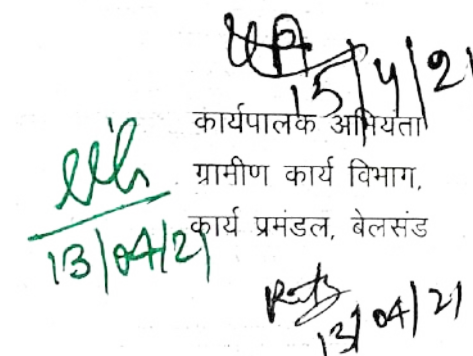 15/4/21
कार्यपालक अभियंता
ग्रामीण कार्य विभाग,
कार्य प्रमंडल, बेलसंड
13/04/21
13/04/21